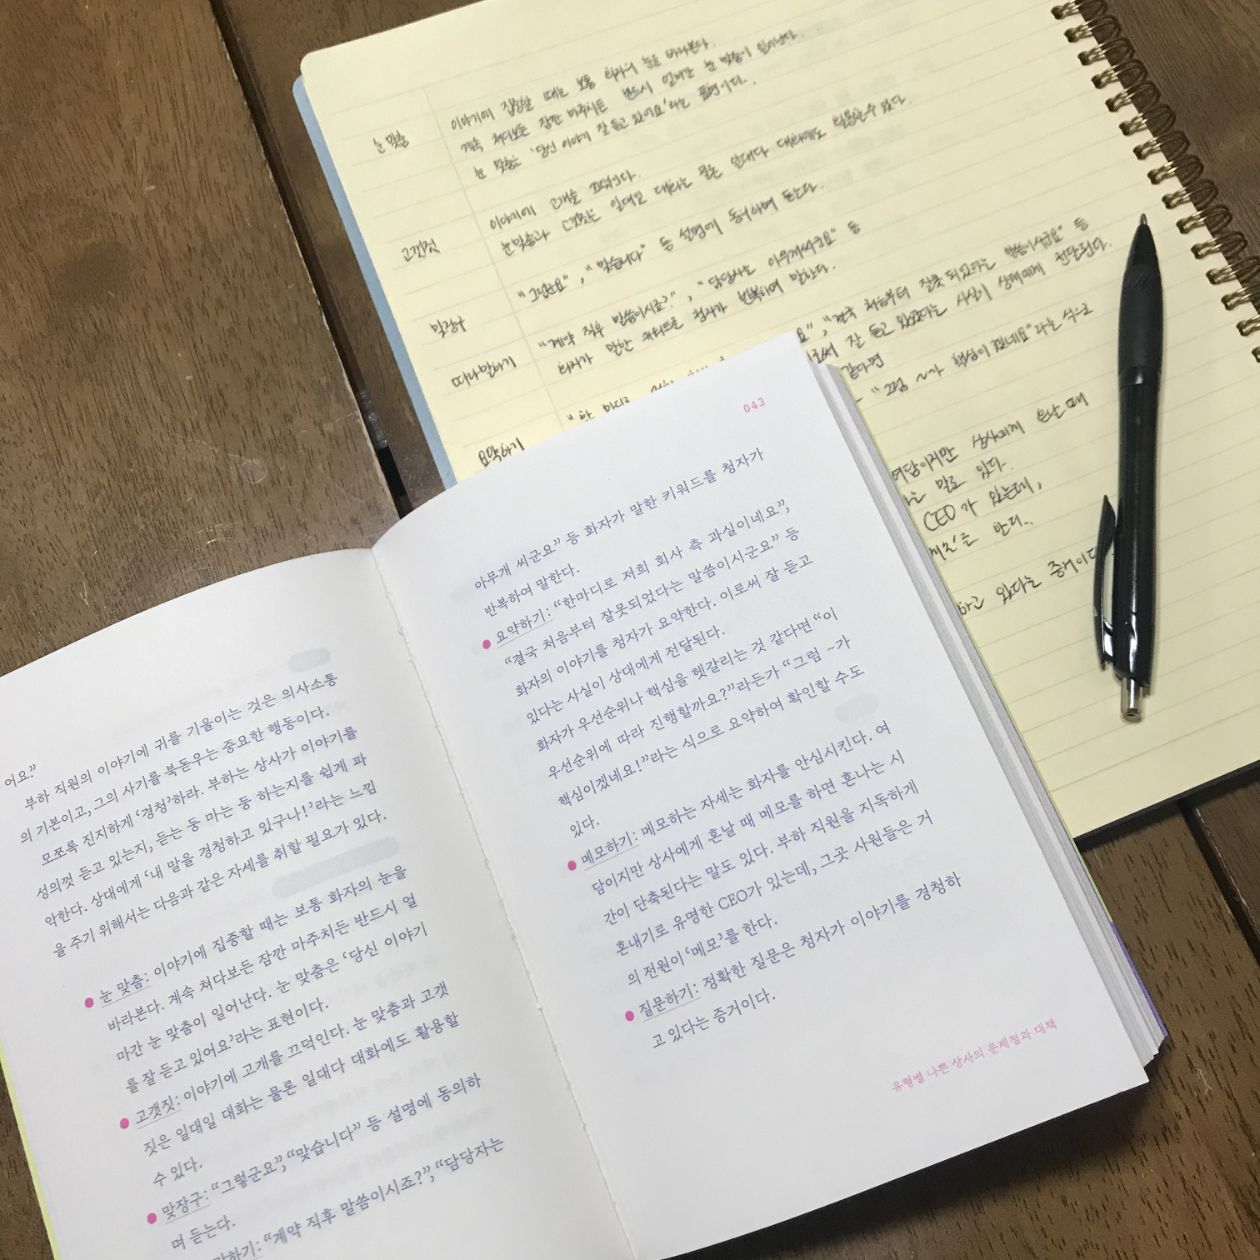 눈 맞춤
이야기에 집중할 때는 보통 화자의 눈을 바라본다.
계속 쳐다보든 잠깐 마주치든 반드시 얼마간 눈 맞춤이 일어난다.
눈 맞춤은 '당신 이야기 잘 듣고 있어요'라는 표현이다.
고갯짓
이야기에 고개를 끄덕인다.
눈맞춤과 고갯짓은 일대일 대화는 물론 일대다 대화에도 활용할 수 있다.
맞장구
"그렇군요", "맞습니다" 등 설명에 동의하며 듣는다.
따라말하기
"계약 직후 말씀이시죠?", "담당자는 아무개씨군요" 등
화자가 말한 키워드를 청자가 반복하여 말한다.
요약하기
"한 마디로
요", "결국 처음부터 잘못 되었다는 말씀이시군요" 등
로써 잘 듣고 있다는 사실이 상대에게 전달된다.
같다면
"그럼 ~가 핵심이겠네요"라는 식으로
여담이지만 상사에게 혼날 때
는 말도 있다.
CEO가 있는데,
'메모'를 한다.
하고 있다는 증거이다
043
아무개 씨군요” 등 화자가 말한 키워드를 청자가
반복하여 말한다.
● 요약하기: “한마디로 저희 회사 측 과실이네요”,
“결국 처음부터 잘못되었다는 말씀이시군요” 등
화자의 이야기를 청자가 요약한다. 이로써 잘 듣고
있다는 사실이 상대에게 전달된다.
화자가 우선순위나 핵심을 헷갈리는 것 같다면 “이
우선순위에 따라 진행할까요?”라든가 “그럼 ~가
핵심이겠네요!”라는 식으로 요약하여 확인할 수도
있다.
● 메모하기: 메모하는 자세는 화자를 안심시킨다. 여
담이지만 상사에게 혼날 때 메모를 하면 혼나는 시
간이 단축된다는 말도 있다. 부하 직원을 지독하게
혼내기로 유명한 CEO가 있는데, 그곳 사원들은 거
의 전원이 ‘메모’를 한다.
● 질문하기: 정확한 질문은 청자가 이야기를 경청하
고 있다는 증거이다.
유형별 나쁜 상사의 문제점과 대책
어요.”
부하 직원의 이야기에 귀를 기울이는 것은 의사소통
의 기본이고, 그의 사기를 북돋우는 중요한 행동이다.
모쪼록 진지하게 ‘경청’하라. 부하는 상사가 이야기를
성의껏 듣고 있는지, 듣는 둥 마는 둥 하는지를 쉽게 파
악한다. 상대에게 ‘내 말을 경청하고 있구나!’라는 느낌
을 주기 위해서는 다음과 같은 자세를 취할 필요가 있다.
● 눈 맞춤: 이야기에 집중할 때는 보통 화자의 눈을
바라본다. 계속 쳐다보든 잠깐 마주치든 반드시 얼
마간 눈 맞춤이 일어난다. 눈 맞춤은 ‘당신 이야기
를 잘 듣고 있어요’라는 표현이다.
● 고갯짓: 이야기에 고개를 끄덕인다. 눈 맞춤과 고갯
짓은 일대일 대화는 물론 일대다 대화에도 활용할
수 있다.
● 맞장구: “그렇군요”, “맞습니다” 등 설명에 동의하
며 듣는다.
말하기: “계약 직후 말씀이시죠?”, “담당자는